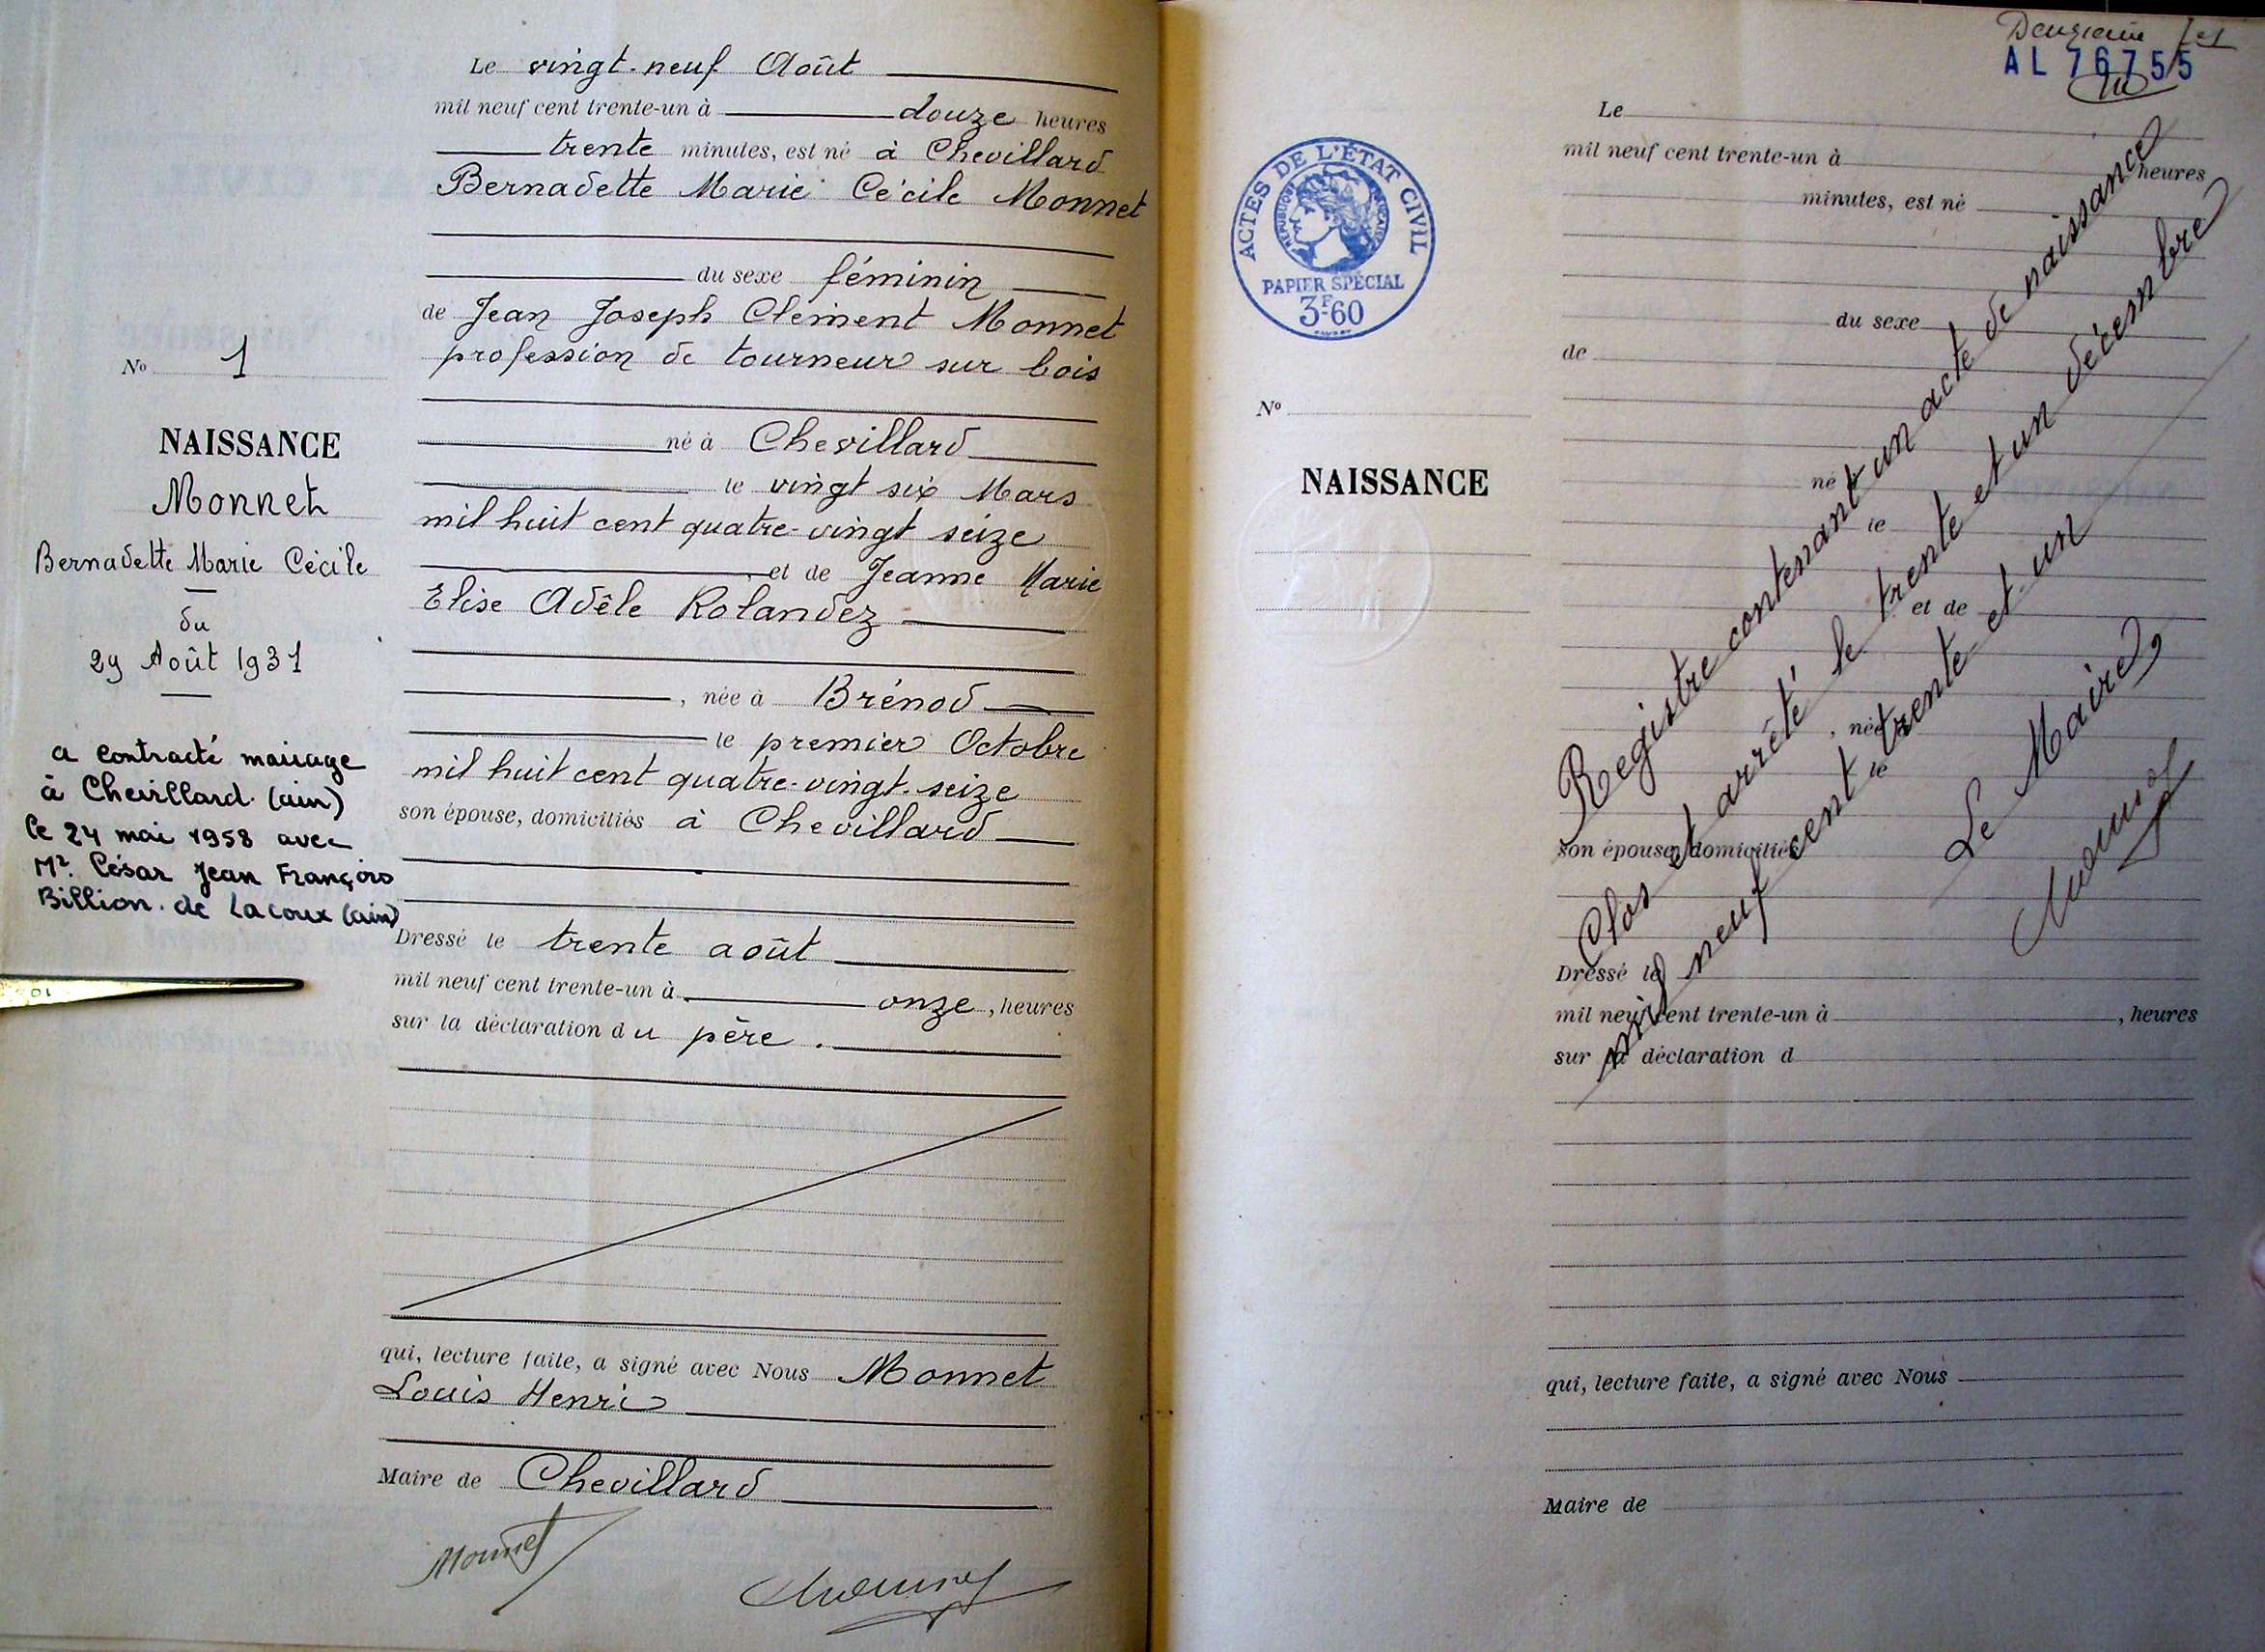 Le vingt-neuf Août
mil neuf cent trente-un à douze heures
trente minutes, est né à Chevillard
Bernadette Marie Cécile Monnet
du sexe féminin
de Jean Joseph Clément Monnet
profession de tourneur sur bois
né à Chevillard
le vingt six Mars
mil huit cent quatre-vingt seize
et de Jeanne Marie
Elise Adèle Rolandez
, née à Brénod
le premier Octobre
mil huit cent quatre-vingt-seize
son épouse, domiciliés à Chevillard
Dressé le trente août
mil neuf cent trente-un à onze, heures
sur la déclaration du père.
qui, lecture faite, a signé avec Nous Monnet
Louis Henri
Maire de Chevillard
Monnet
No 1
NAISSANCE
Monnet
Bernadette Marie Cécile
du
29 Août 1931
a contracté mariage
à Chevillard (ain)
le 24 mai 1958 avec
Mr. César Jean François
Billion. de Lacoux (ain)
10
Deuxième
AL 76755
ACTES DE L'ÉTAT CIVIL
RÉPUBLIQUE FRANÇAISE
PAPIER SPÉCIAL
3F60
No
NAISSANCE
Le
mil neuf cent trente-un à heures
minutes, est né
du sexe
de
né
le
et de
, née
le
son épouse, domiciliés
Dressé le
mil neuf cent trente-un à , heures
sur la déclaration d
qui, lecture faite, a signé avec Nous
Maire de
Registre contenant un acte de naissance
Clos et arrêté le trente et un décembre
mil neuf cent trente et un
Le Maire,